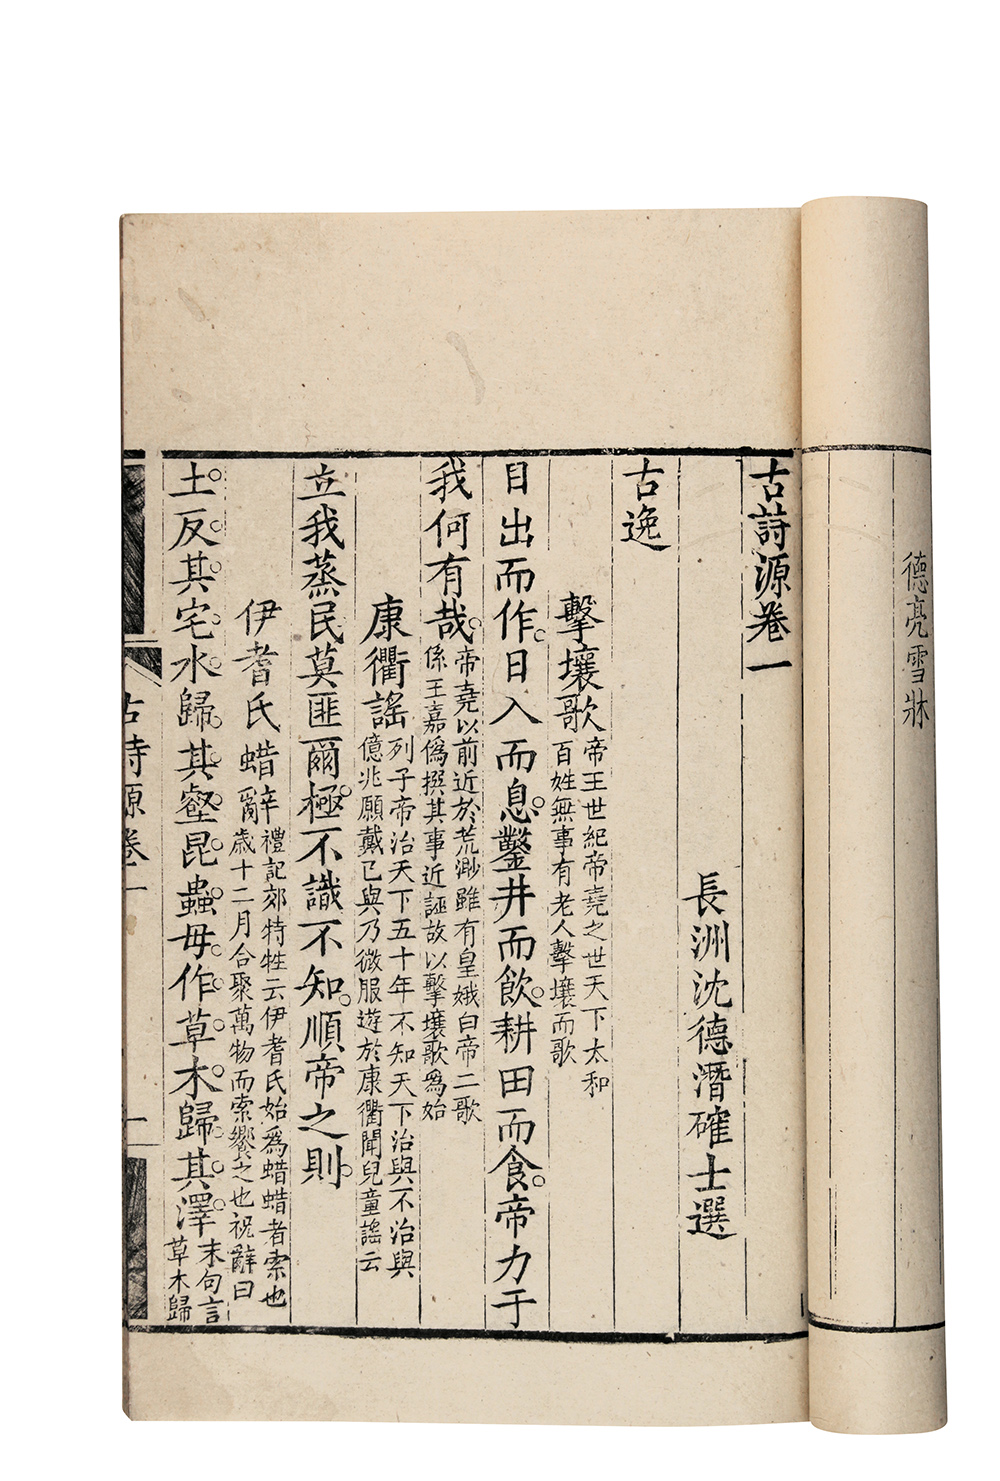 德亮雪牀
古詩源卷一
長洲沈德潛確士選
古逸
擊壤歌帝王世紀帝堯之世天下太和
百姓無事有老人擊壤而歌
日出而作。日入而息。鑿井而飲。耕田而食。帝力于
我何有哉。帝堯以前近於荒渺雖有皇娥白帝二歌
係王嘉僞撰其事近誣故以擊壤歌爲始
康衢謠列子帝治天下五十年不知天下治與不治與
億兆願戴已與乃微服遊於康衢聞兒童謠云
立我蒸民莫匪爾極。不識不知。順帝之則。
伊耆氏蜡辭禮記郊特牲云伊耆氏始爲蜡蜡者索也
歲十二月合聚萬物而索饗之也祝辭曰
土。反。其。宅。水。歸。其。壑。昆。蟲。毋。作。草。木。歸。其。澤。末句言
草木歸
古詩源卷一
一